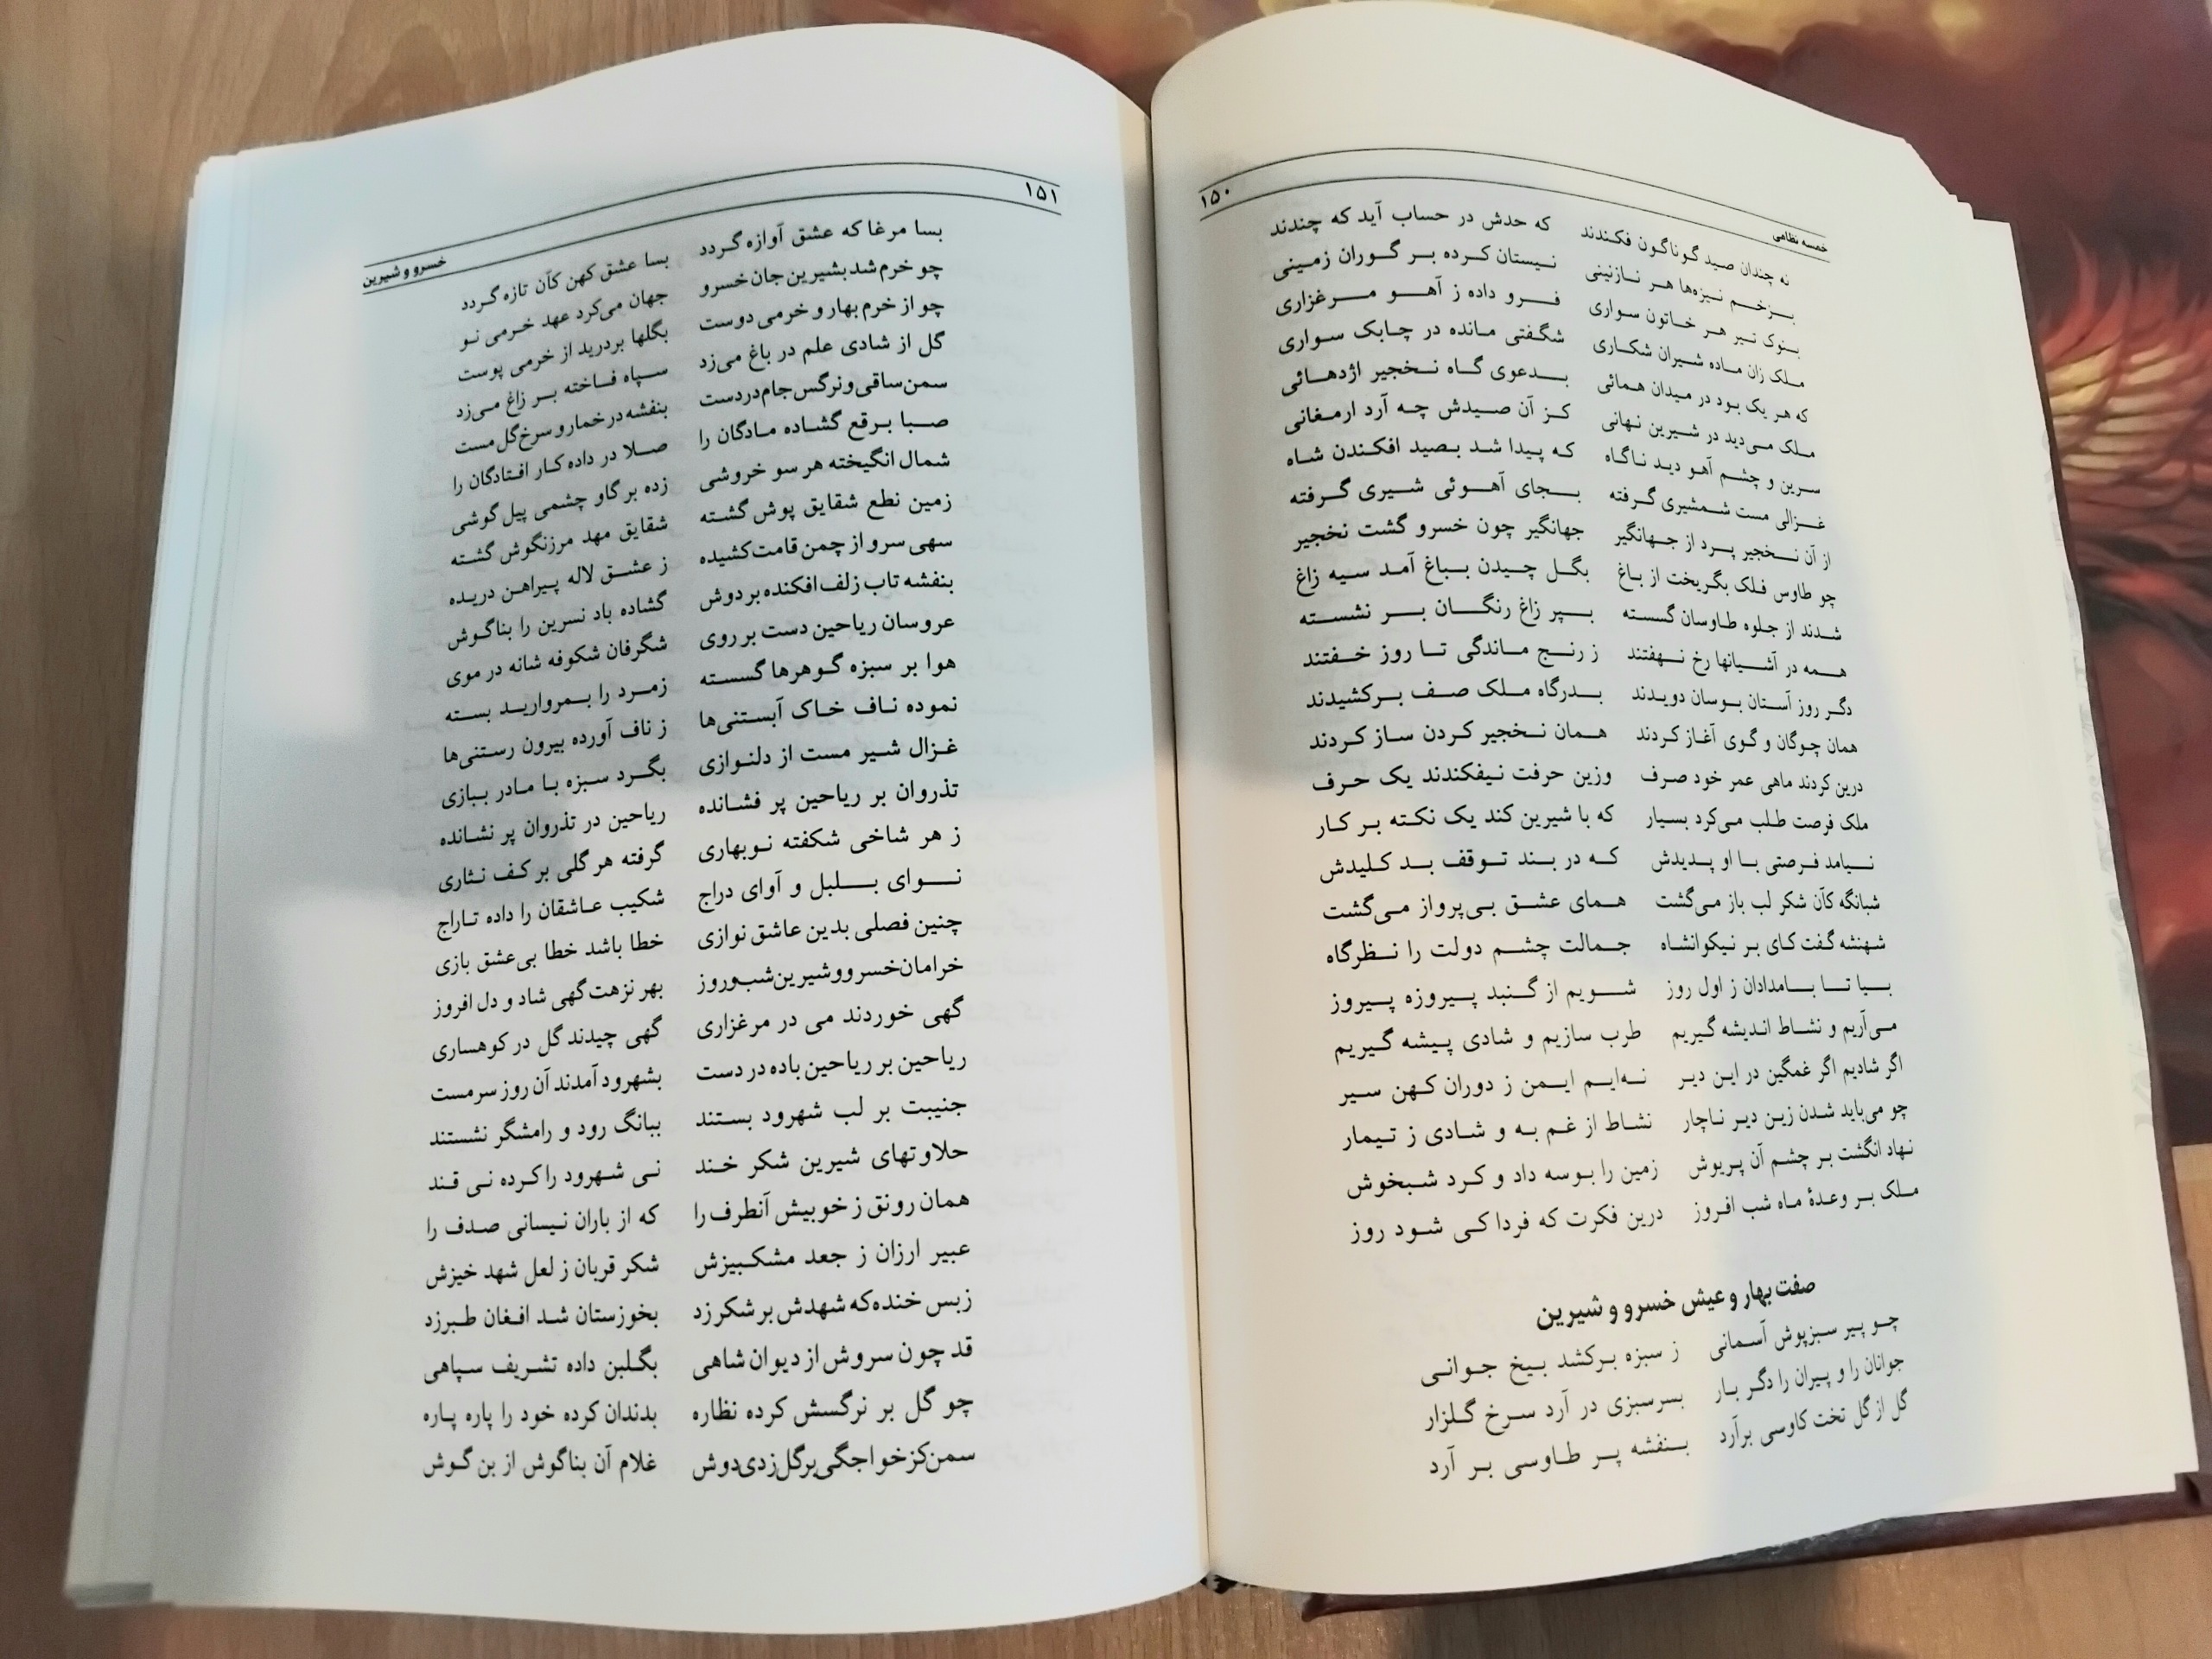 خمسه نظامی ۱۵۰
نه چندان صید گوناگون فکندند که حدش در حساب آید که چندند
بزخم نیزه‌ها هر نازنینی نیستان کرده بر گوران زمینی
بنوک تیر هر خاتون سواری فرو داده ز آهو مرغزاری
ملک زان ماده شیران شکاری شگفتی مانده در چابک سواری
که هر یک بود در میدان همائی بدعوی گاه نخجیر اژدهائی
ملک می‌دید در شیرین نهانی کز آن صیدش چه آرد ارمغانی
سرین و چشم آهو دید ناگاه که پیدا شد بصید افکندن شاه
غزالی مست شمشیری گرفته بجای آهوئی شیری گرفته
از آن نخجیر پرد از جهانگیر جهانگیر چون خسرو گشت نخجیر
چو طاوس فلک بگریخت از باغ بگل چیدن بباغ آمد سیه زاغ
شدند از جلوه طاوسان گسسته بپر زاغ رنگان بر نشسته
همه در آشیانها رخ نهفتند ز رنج ماندگی تا روز خفتند
دگر روز آستان بوسان دویدند بدرگاه ملک صف برکشیدند
همان چوگان و گوی آغاز کردند همان نخجیر کردن ساز کردند
درین کردند ماهی عمر خود صرف وزین حرفت نیفکندند یک حرف
ملک فرصت طلب می‌کرد بسیار که با شیرین کند یک نکته بر کار
نیامد فرصتی با او پدیدش که در بند توقف بد کلیدش
شبانگه کآن شکر لب باز می‌گشت همای عشق بی‌پرواز می‌گشت
شهنشه گفت کای بر نیکوانشاه جمالت چشم دولت را نظرگاه
بیا تا بامدادان ز اول روز شویم از گنبد پیروزه پیروز
می‌آریم و نشاط اندیشه گیریم طرب سازیم و شادی پیشه گیریم
اگر شادیم اگر غمگین در این دیر نه‌ایم ایمن ز دوران کهن سیر
چو می‌باید شدن زین دیر ناچار نشاط از غم به و شادی ز تیمار
نهاد انگشت بر چشم آن پریوش زمین را بوسه داد و کرد شبخوش
ملک بر وعدهٔ ماه شب افروز درین فکرت که فردا کی شود روز
صفت بهار و عیش خسرو و شیرین
چو پیر سبزپوش آسمانی ز سبزه برکشد بیخ جوانی
جوانان را و پیران را دگر بار بسرسبزی در آرد سرخ گلزار
گل از گل تخت کاوسی برآرد بنفشه پر طاوسی بر آرد
۱۵۱ خسرو و شیرین
بسا مرغا که عشق آوازه گردد بسا عشق کهن کآن تازه گردد
چو خرم شد بشیرین جان خسرو جهان می‌کرد عهد خرمی نو
چو از خرم بهار و خرمی دوست بگلها بردرید از خرمی پوست
گل از شادی علم در باغ می‌زد سپاه فاخته بر زاغ می‌زد
سمن ساقی و نرگس جام در دست بنفشه در خمار و سرخ گل مست
صبا برقع گشاده مادگان را صلا در داده کار افتادگان را
شمال انگیخته هر سو خروشی زده بر گاو چشمی پیل گوشی
زمین نطع شقایق پوش گشته شقایق مهد مرزنگوش گشته
سهی سرو از چمن قامت کشیده ز عشق لاله پیراهن دریده
بنفشه تاب زلف افکنده بر دوش گشاده باد نسرین را بناگوش
عروسان ریاحین دست بر روی شگرفان شکوفه شانه در موی
هوا بر سبزه گوهرها گسسته زمرد را بمروارید بسته
نموده ناف خاک آبستنی‌ها ز ناف آورده بیرون رستنی‌ها
غزال شیر مست از دلنوازی بگرد سبزه با مادر ببازی
تذروان بر ریاحین پر فشانده ریاحین در تذروان پر نشانده
ز هر شاخی شکفته نوبهاری گرفته هر گلی بر کف نثاری
نوای بلبل و آوای دراج شکیب عاشقان را داده تاراج
چنین فصلی بدین عاشق نوازی خطا باشد خطا بی‌عشق بازی
خرامان خسرو و شیرین شب و روز بهر نزهت گهی شاد و دل افروز
گهی خوردند می در مرغزاری گهی چیدند گل در کوهساری
ریاحین بر ریاحین باده در دست بشهرود آمدند آن روز سرمست
جنیبت بر لب شهرود بستند ببانگ رود و رامشگر نشستند
حلاوتهای شیرین شکر خند نی شهرود را کرده نی قند
همان رونق ز خوبیش آنطرف را که از باران نیسانی صدف را
عبیر ارزان ز جعد مشکبیزش شکر قربان ز لعل شهد خیزش
زبس خنده که شهدش بر شکر زد بخوزستان شد افغان طبرزد
قد چون سروش از دیوان شاهی بگلبن داده تشریف سپاهی
چو گل بر نرگسش کرده نظاره بدندان کرده خود را پاره پاره
سمن کز خواجگی برگل زدی دوش غلام آن بناگوش از بن گوش